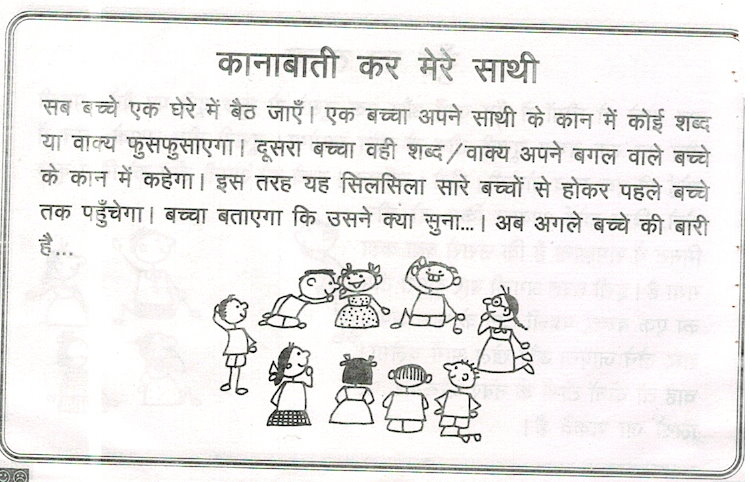 कानाबाती कर मेरे साथी
सब बच्चे एक घेरे में बैठ जाएँ। एक बच्चा अपने साथी के कान में कोई शब्द
या वाक्य फुसफुसाएगा। दूसरा बच्चा वही शब्द/वाक्य अपने बगल वाले बच्चे
के कान में कहेगा। इस तरह यह सिलसिला सारे बच्चों से होकर पहले बच्चे
तक पहुँचेगा। बच्चा बताएगा कि उसने क्या सुना...। अब अगले बच्चे की बारी
है...